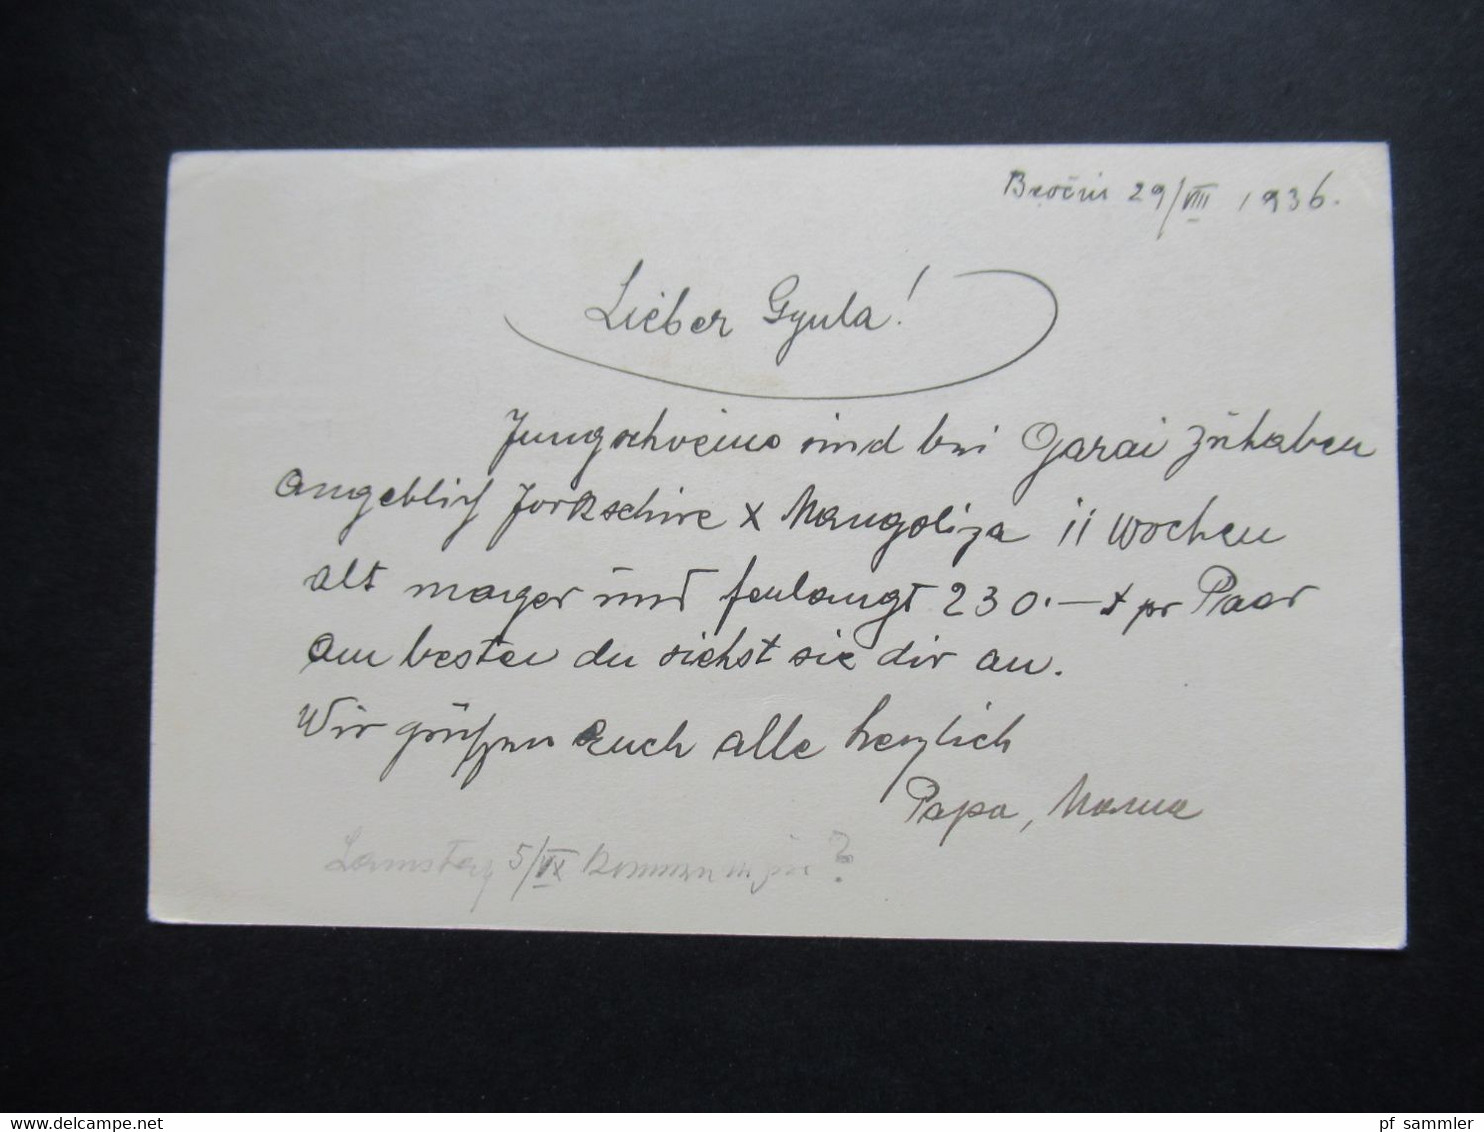 29/VIII 1936.
Lieber Gyula!
Jungschweine sind bei Garai zuhaben
angeblich Jorkschire x Mangoliza 11 Wochen
alt mager und ferlangt 230.— pr Paar
am besten du siehst sie dir an.
Wir grüßen euch alle herzlich
Papa, Mama
Samstag 5/IX kommen wir?
www.delcampe.net
pf_sammler